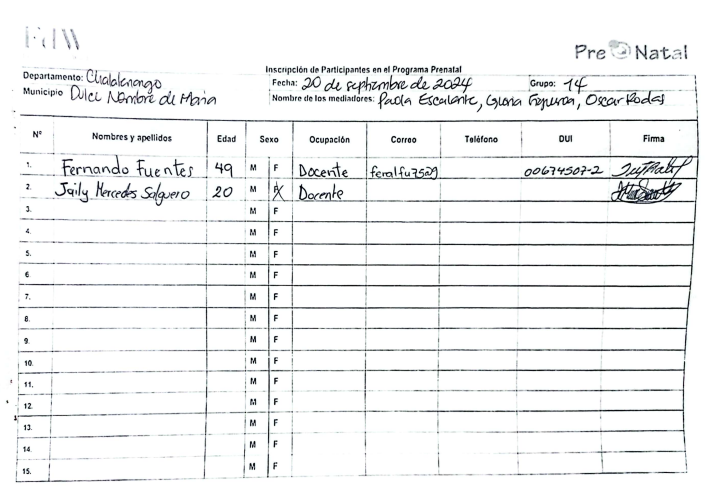 FdW
Pre Natal
Inscripción de Participantes en el Programa Prenatal
Departamento: Chalatenango Fecha: 20 de septiembre de 2024 Grupo: 14
Municipio Dulce Nombre de María Nombre de los mediadores: Paola Escalante, Gloria Figueroa, Oscar Rodas
Nº Nombres y apellidos Edad Sexo Ocupación Correo Teléfono DUI Firma
1. Fernando Fuentes 49 M F Docente feralfu75@g 00674507-2
2. Jaily Mercedes Salguero 20 M F Docente
3. M F
4. M F
5. M F
6. M F
7. M F
8. M F
9. M F
10. M F
11. M F
12. M F
13. M F
14. M F
15. M F